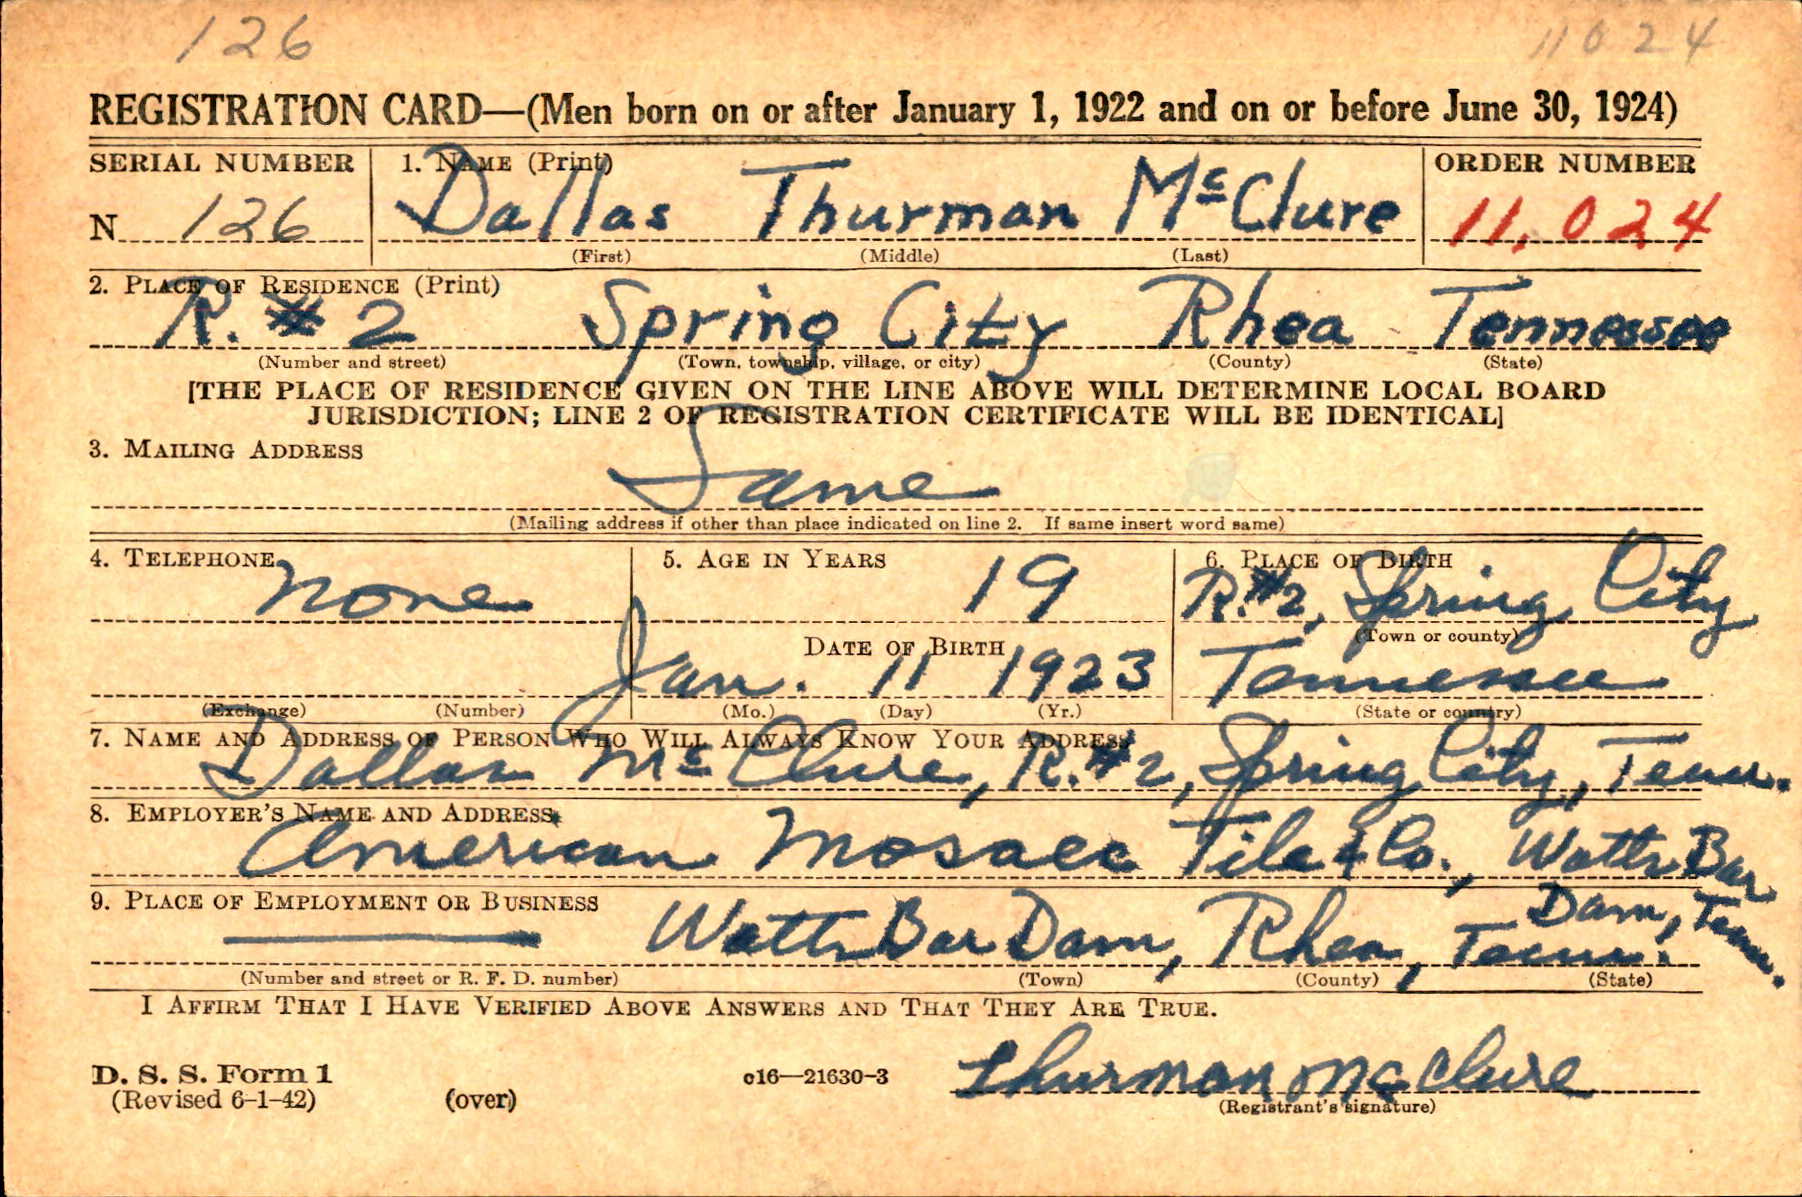 126 11024
REGISTRATION CARD—(Men born on or after January 1, 1922 and on or before June 30, 1924)
SERIAL NUMBER 1. NAME (Print) ORDER NUMBER
N 126 Dallas Thurman McClure 11,024
(First) (Middle) (Last)
2. PLACE OF RESIDENCE (Print)
R. #2 Spring City Rhea Tennessee
(Number and street) (Town, township, village, or city) (County) (State)
[THE PLACE OF RESIDENCE GIVEN ON THE LINE ABOVE WILL DETERMINE LOCAL BOARD
JURISDICTION; LINE 2 OF REGISTRATION CERTIFICATE WILL BE IDENTICAL]
3. MAILING ADDRESS
Same
(Mailing address if other than place indicated on line 2. If same insert word same)
4. TELEPHONE 5. AGE IN YEARS 6. PLACE OF BIRTH
None 19 R.#2, Spring City
(Town or county)
DATE OF BIRTH
Jan. 11 1923 Tennessee
(Exchange) (Number) (Mo.) (Day) (Yr.) (State or country)
7. NAME AND ADDRESS OF PERSON WHO WILL ALWAYS KNOW YOUR ADDRESS
Dallas McClure, R.#2, Spring City, Tenn.
8. EMPLOYER'S NAME AND ADDRESS
American Mosaec Tile & Co., Watts Bar
Dam, Tenn.
9. PLACE OF EMPLOYMENT OR BUSINESS
Watts Bar Dam, Rhea, Tenn.
(Number and street or R. F. D. number) (Town) (County) (State)
I AFFIRM THAT I HAVE VERIFIED ABOVE ANSWERS AND THAT THEY ARE TRUE.
D. S. S. Form 1
(Revised 6-1-42) (over) c16—21630-3 Thurman McClure
(Registrant's signature)